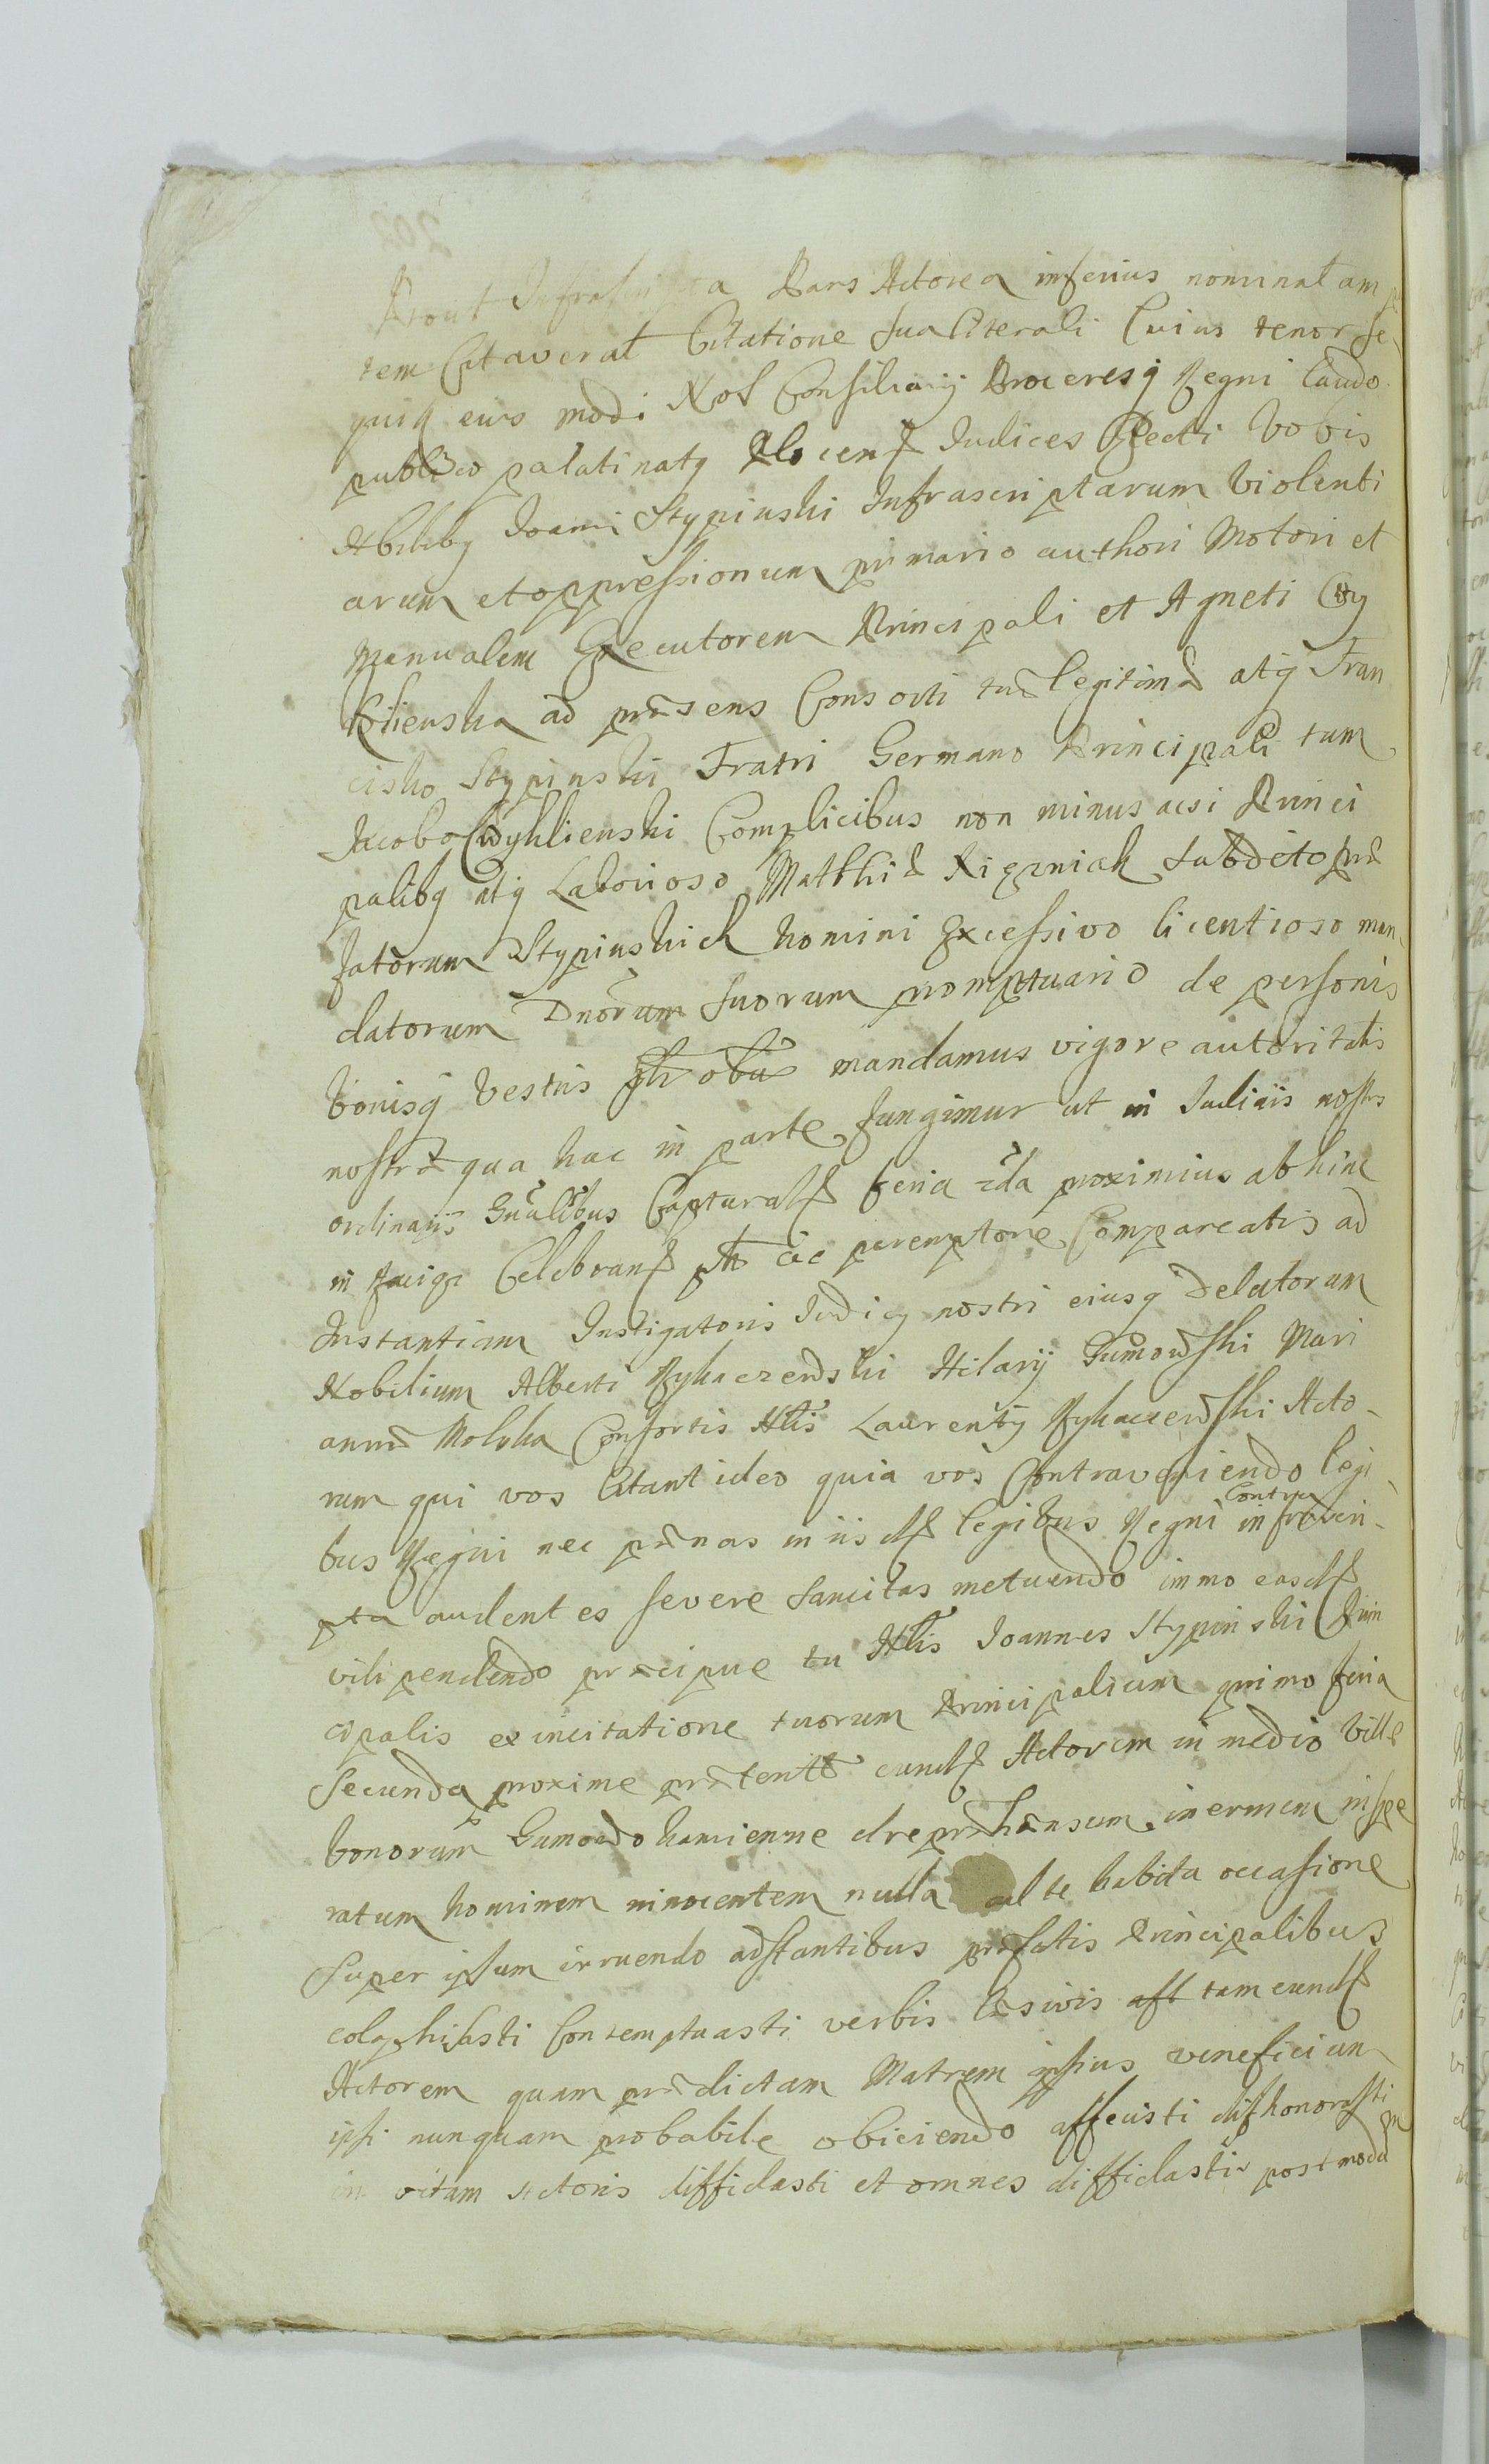 Prout Infrascripta Pars Actorea inferius nominatam par
tem Citaverat Citatione sua literali Cuius tenor se
quitq eius modi Nos Consiliarij Proceresq Regni laudo
publico palatinatq Plocens Iudices Electi Vobis
Nbilibq Joanni Stypinski Infrascriptarum violenti
arum et oppressionum primario authori Motori et
Manualem Executorem Principali et Agneti Cwy
klienska ad præsens Consorti tuæ legitimæ atq Fran
cisko Stypinski Fratri Germano Principali tum
Jacobo Cwyklienski Complicibus non minus acsi Princi
palibq atq Laborioso Matthiæ Rzepniak Subdito præ
fatorum Stypinskich homini Excessivo licentioso man
datorum Dnorum suorum promptuario de personis
bonisq vestris mandamus vigore autoritatis
nostræ qua hac in parte fungimur ut in Iudiciis nostrs
ordinarijs Gnalibus Capturals feria 2da proximius abhinc
in Raciąż Celebrans ptr ac peremptorie Compareatis ad
Instantiam Instigatoris Iudicy nostri eiusq delatorum
Nobilium Alberti Rykaczewski Hilarij Gumowski Mari
annæ Molska Consortis Nlis Laurentij Rykaczewski Acto-
rum qui vos Citant ideo quia vos Contraveniendo legi
bus Regni nec pænas in iisds legibus Regni Contra infrascri-
pta audentes severe sancitas metuendo immo easds
vilipendendo præcipue tu Nlis Joannes Stypinski Prin
cipalis ex incitatione tuorum Principalium primo feria
Secunda proxime præterita eunds Actorem in medio Villæ
bonorum Gumowo kamienne depræhensum inermem inspe
ratum hominem innocentem nulla ad te habita occasione
super ipsum irruendo adstantibus præfatis Principalibus
colaphisasti Contemptuasti verbis læsivis ast tam eunds
Actorem quam prædictam Matrem ipsius veneficium
ipsi nunquam probabile obiciendo affecisti dishonorasti
in vitam Actoris diffidasti et omnes diffidastis postmodum